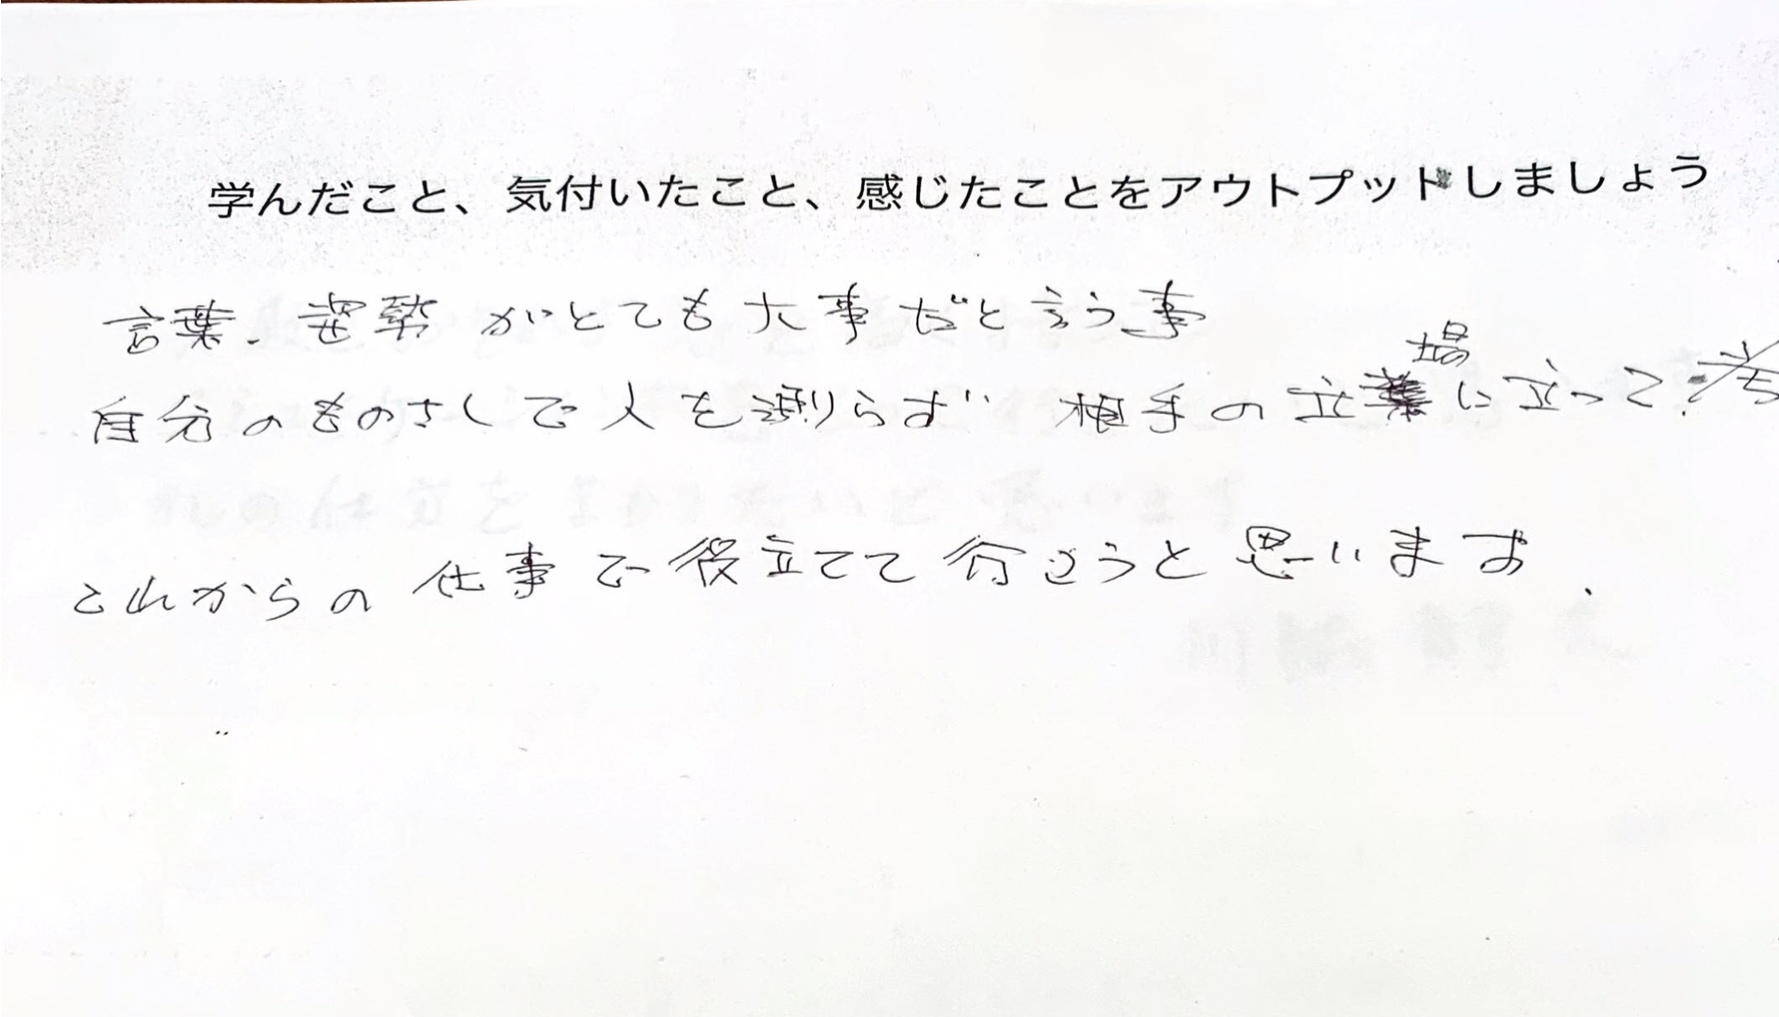 学んだこと、気付いたこと、感じたことをアウトプットしましょう
言葉、姿勢がとても大事だと言う事
自分のものさしで人を測らず 相手の立場に立って考
これからの仕事で役立てて行こうと思います.